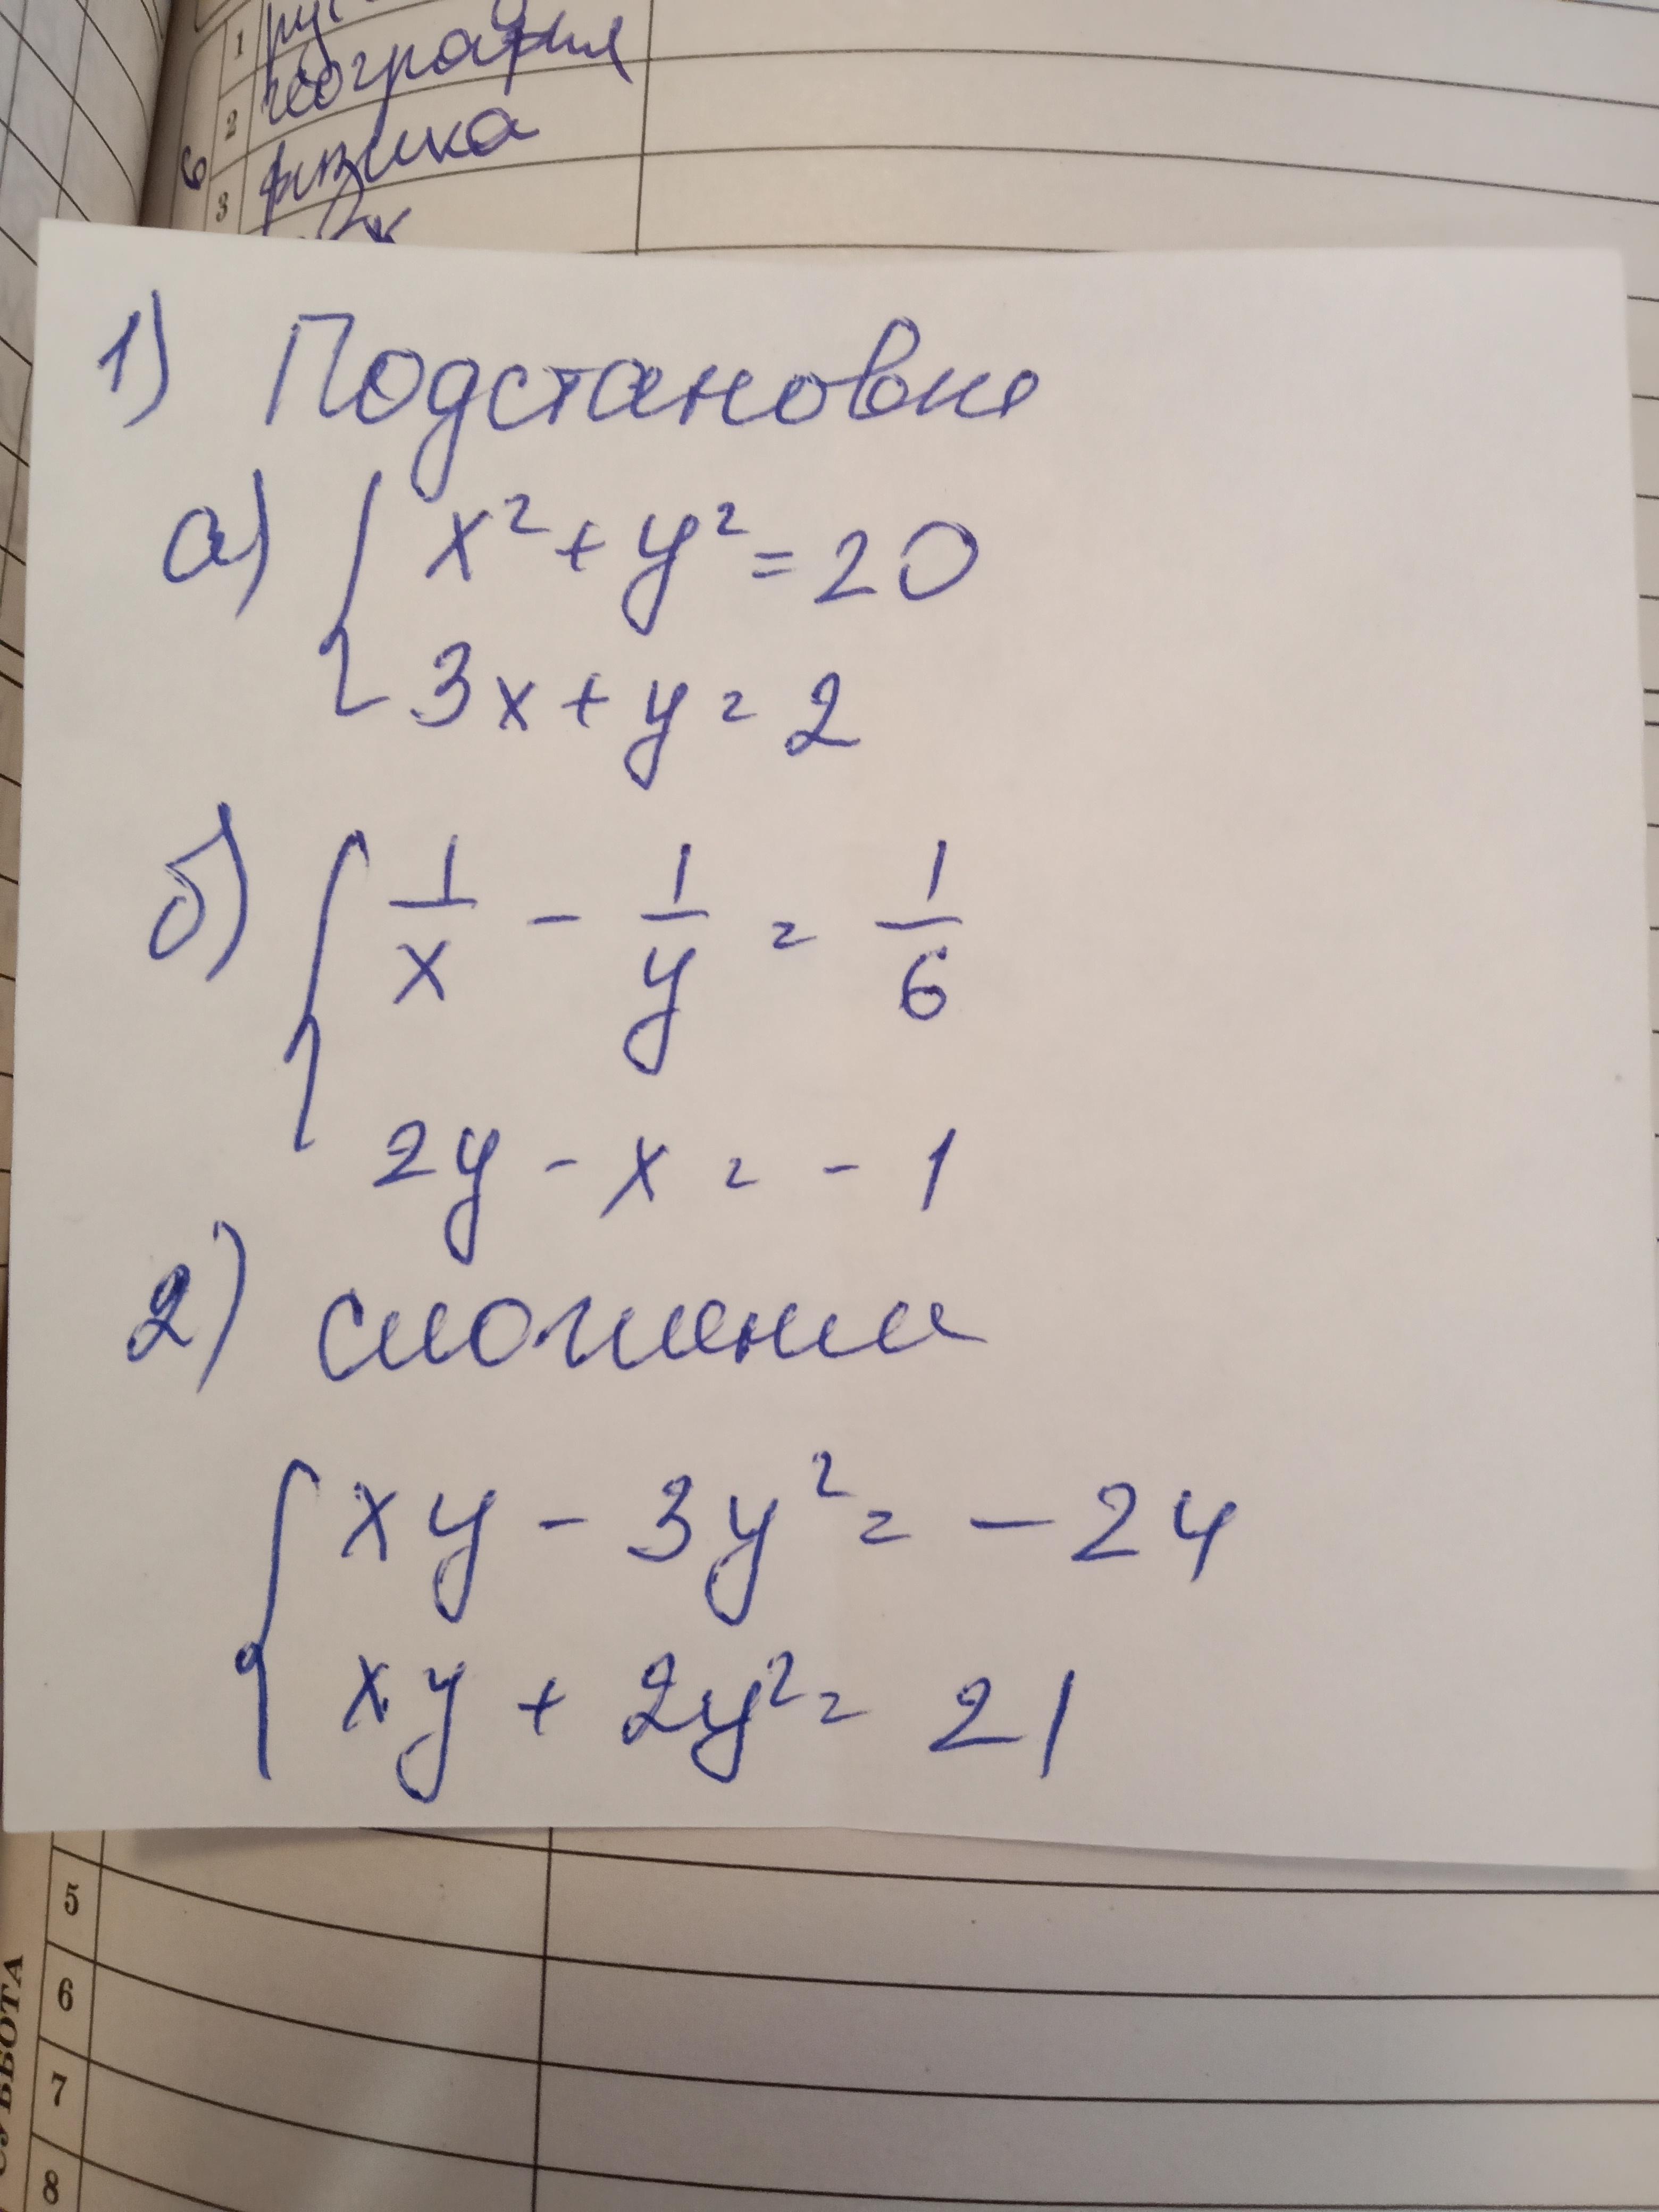 1
2 география
6
3 физика
1) Подстановка
а) { x² + y² = 20
3x + y = 2
б) { 1/x - 1/y = 1/6
2y - x = -1
2) сложения
{ xy - 3y² = -24
xy + 2y² = 21
5
6
7
8
СУББОТА